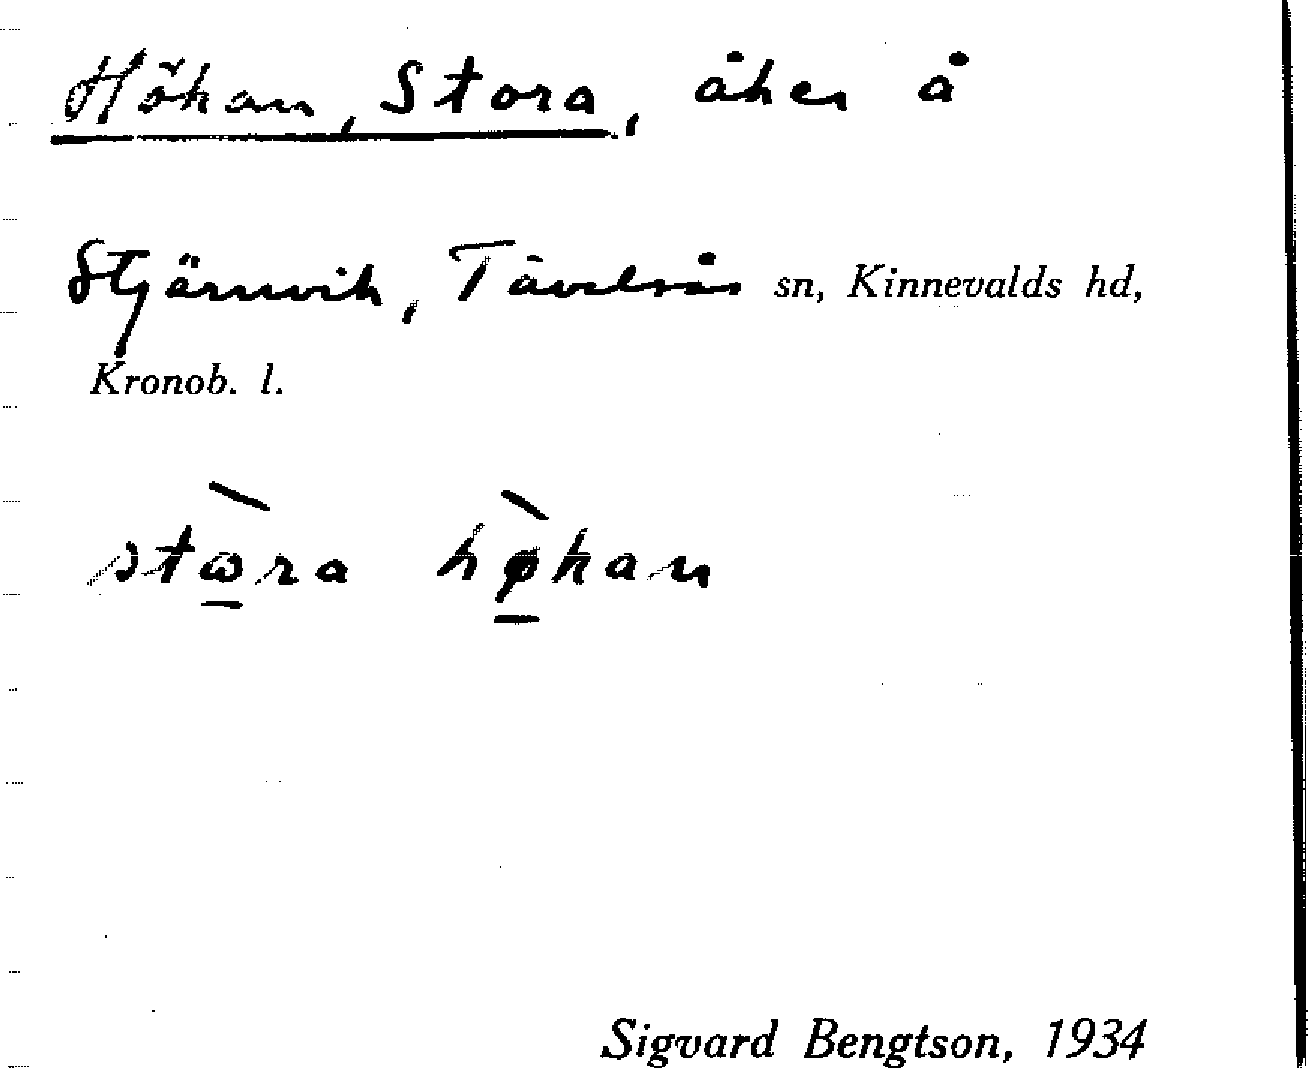 Hökan, Stora, åker å
Stjärnvik, Tävelsås sn, Kinnevalds hd,
Kronob. l.
stⱺ̀ra hø̀kan
Sigvard Bengtson, 1934